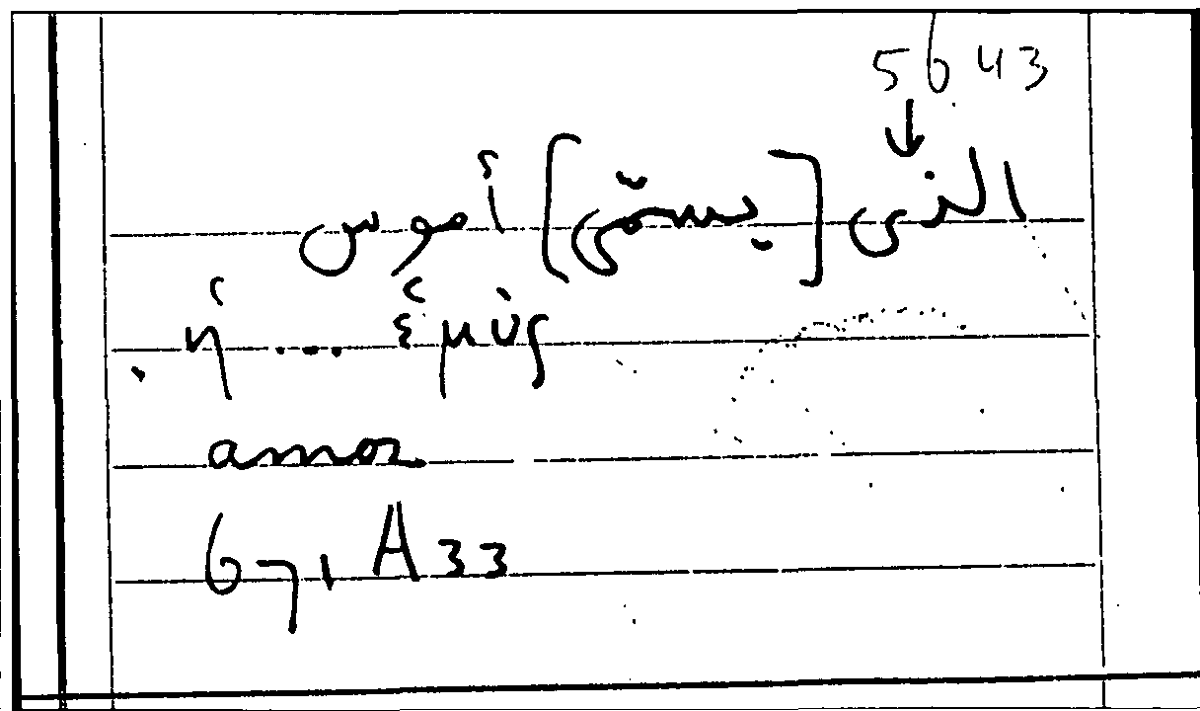 5643
↓
الذى [يسمّى] أموس
ἡ ... ἑμὺς
amos
671 A33